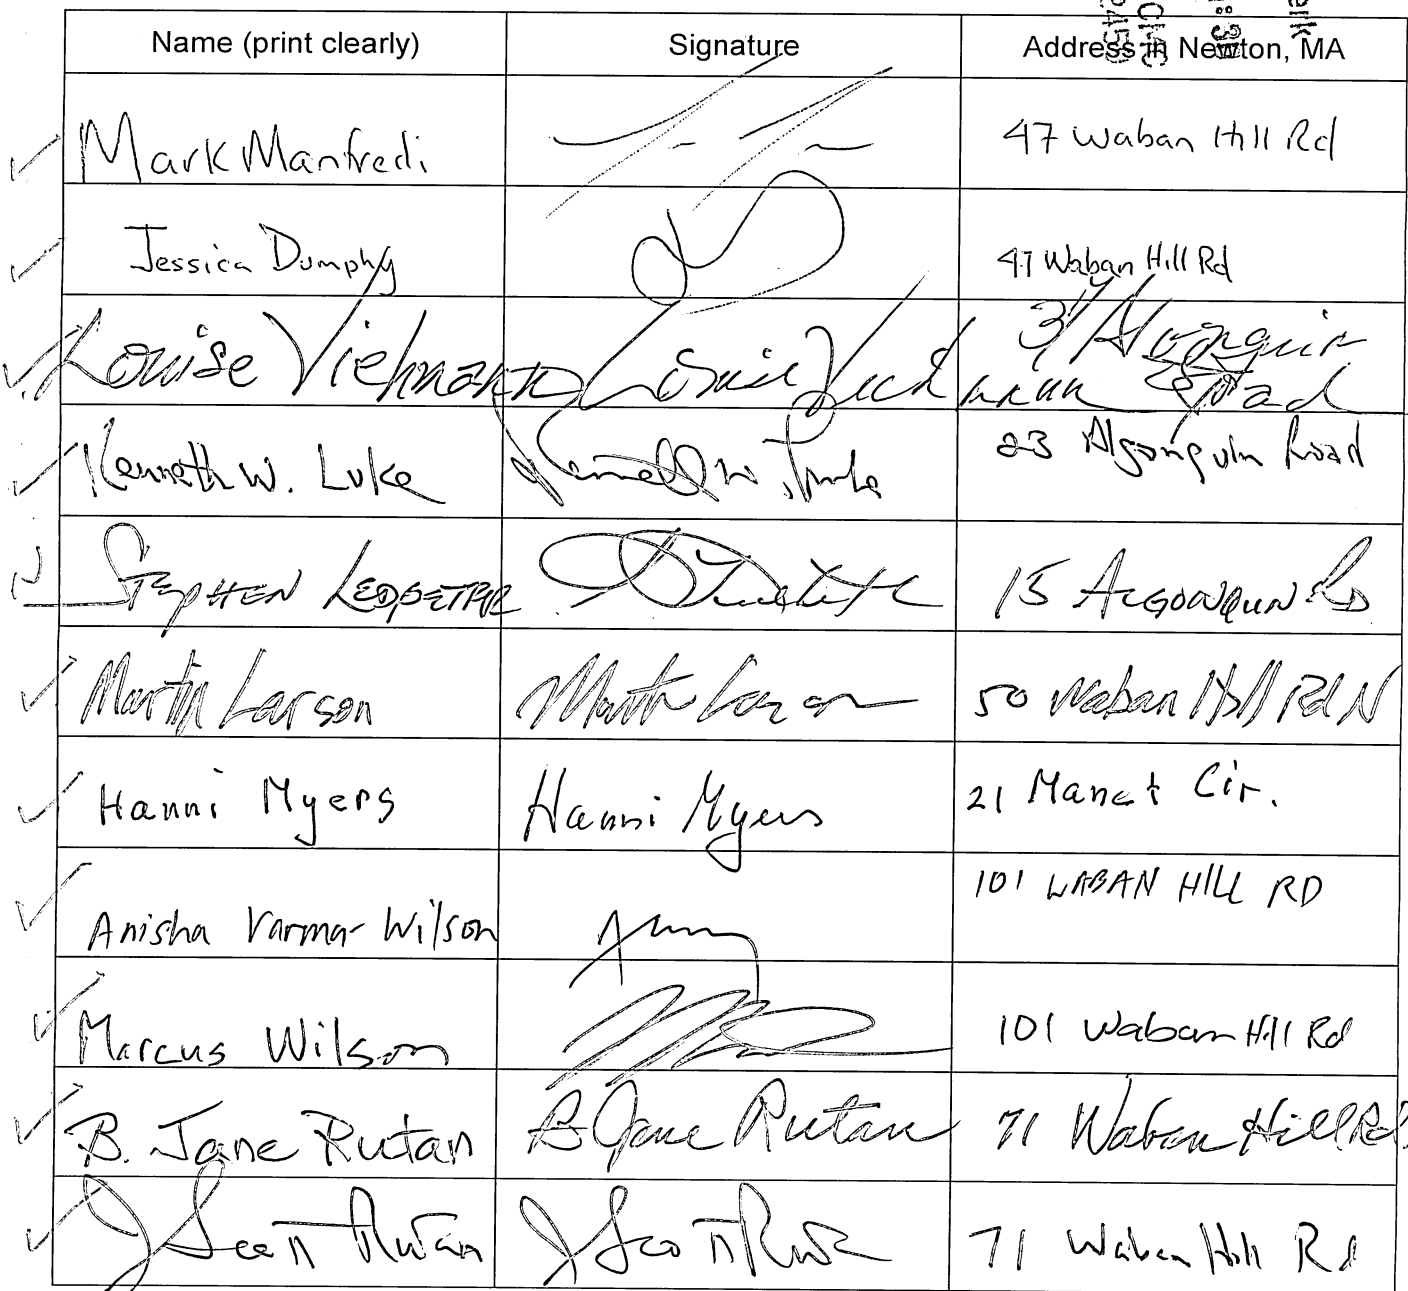 erk
Name (print clearly) Signature Address in Newton, MA
Mark Manfredi 47 Waban Hill Rd
Jessica Dumphy 47 Waban Hill Rd
Louise Viehmann Louise Viehmann 31 Algonquin Road
Kenneth W. Luke Kenneth W. Luke 23 Algonquin Road
STEPHEN LEDBETTER 15 ALGONQUIN RD
Martin Larson Martin Larson 50 Waban Hill Rd N
Hanni Myers Hanni Myers 21 Manet Cir.
Anisha Varma-Wilson 101 WABAN HILL RD
Marcus Wilson 101 Waban Hill Rd
B. Jane Rutan B Jane Rutan 71 Waban Hill Rd
J Scott Rutan J Scott Rutan 71 Waban Hill Rd